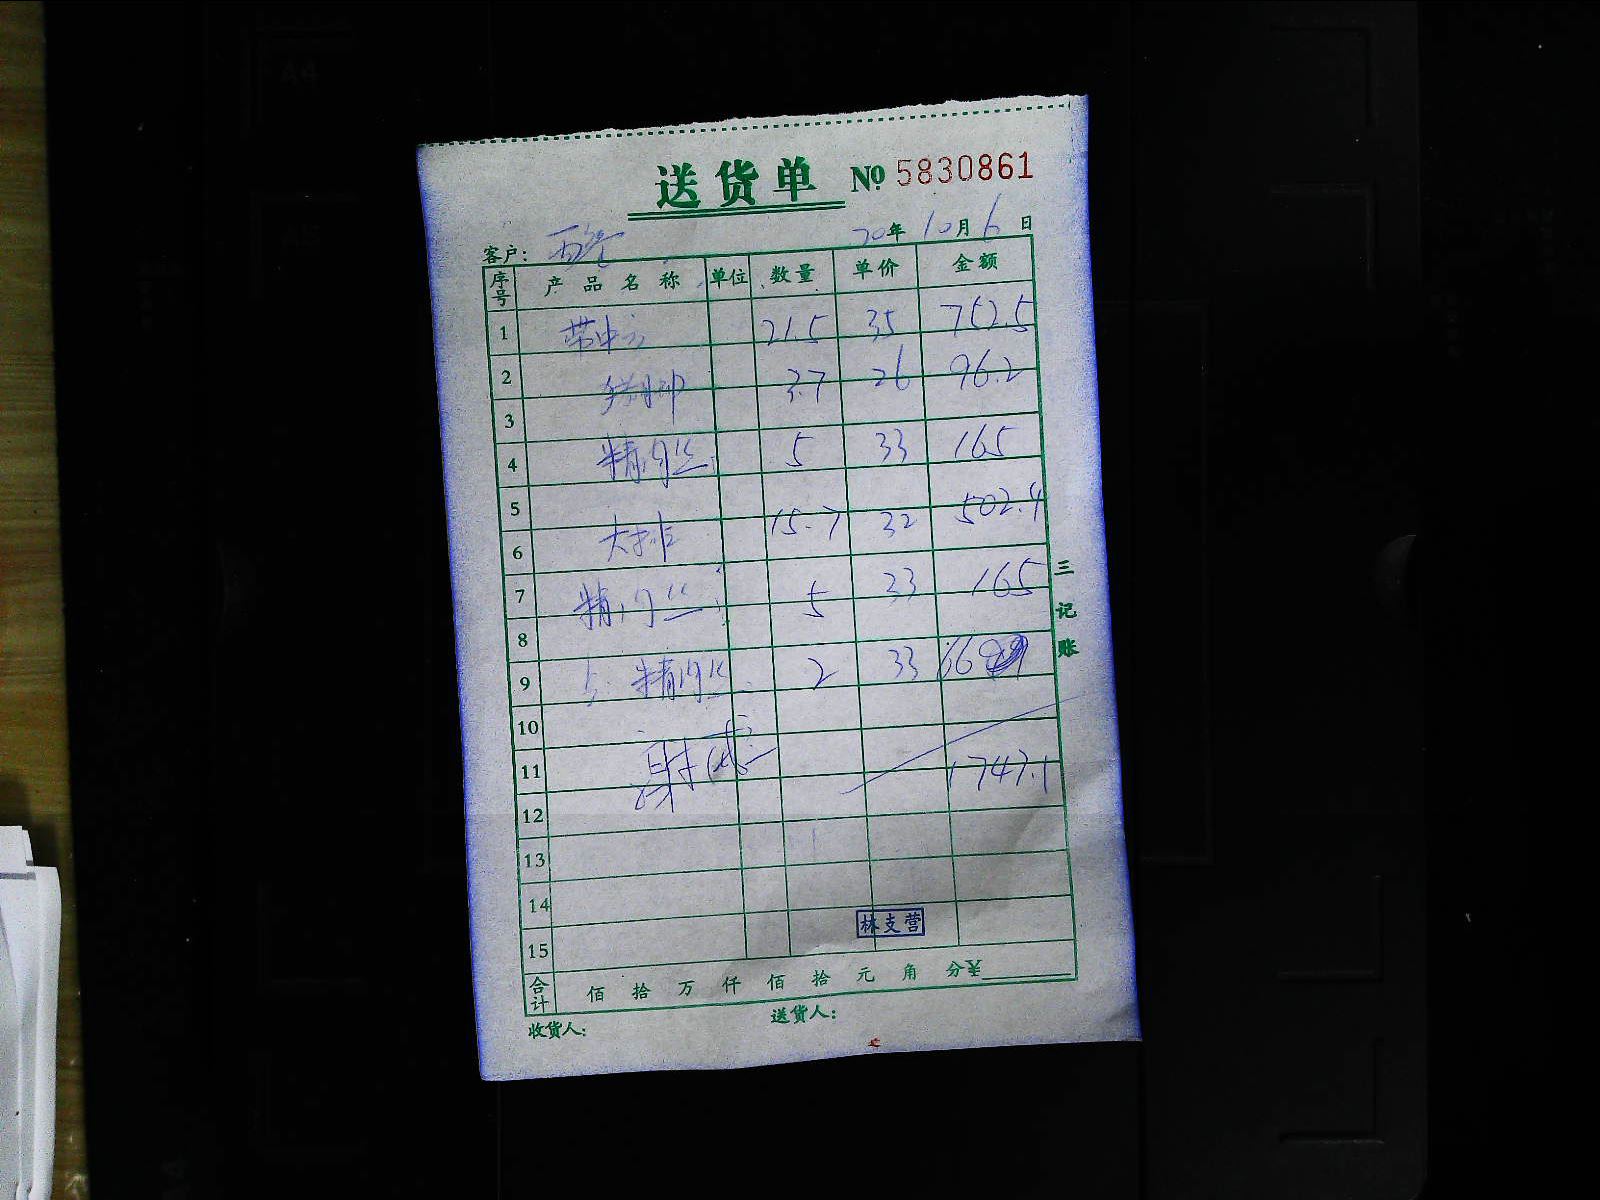 送货单 № 5830861
客户: 西餐 20年10月6日
序号 产品名称 单位 数量 单价 金额
1 带中方 21.5 35 752.5
2 3.7 26 96.2
3
4 精肉丝 5 33 165
5
6 大排 15.7 32 502.4
7 精肉丝 5 33 165
8
9 精肉丝 2 33 66
10
11 谢 1747.1
12
13
14
林支营
15
合计 佰 拾 万 仟 佰 拾 元 角 分¥
收货人: 送货人:
三记账